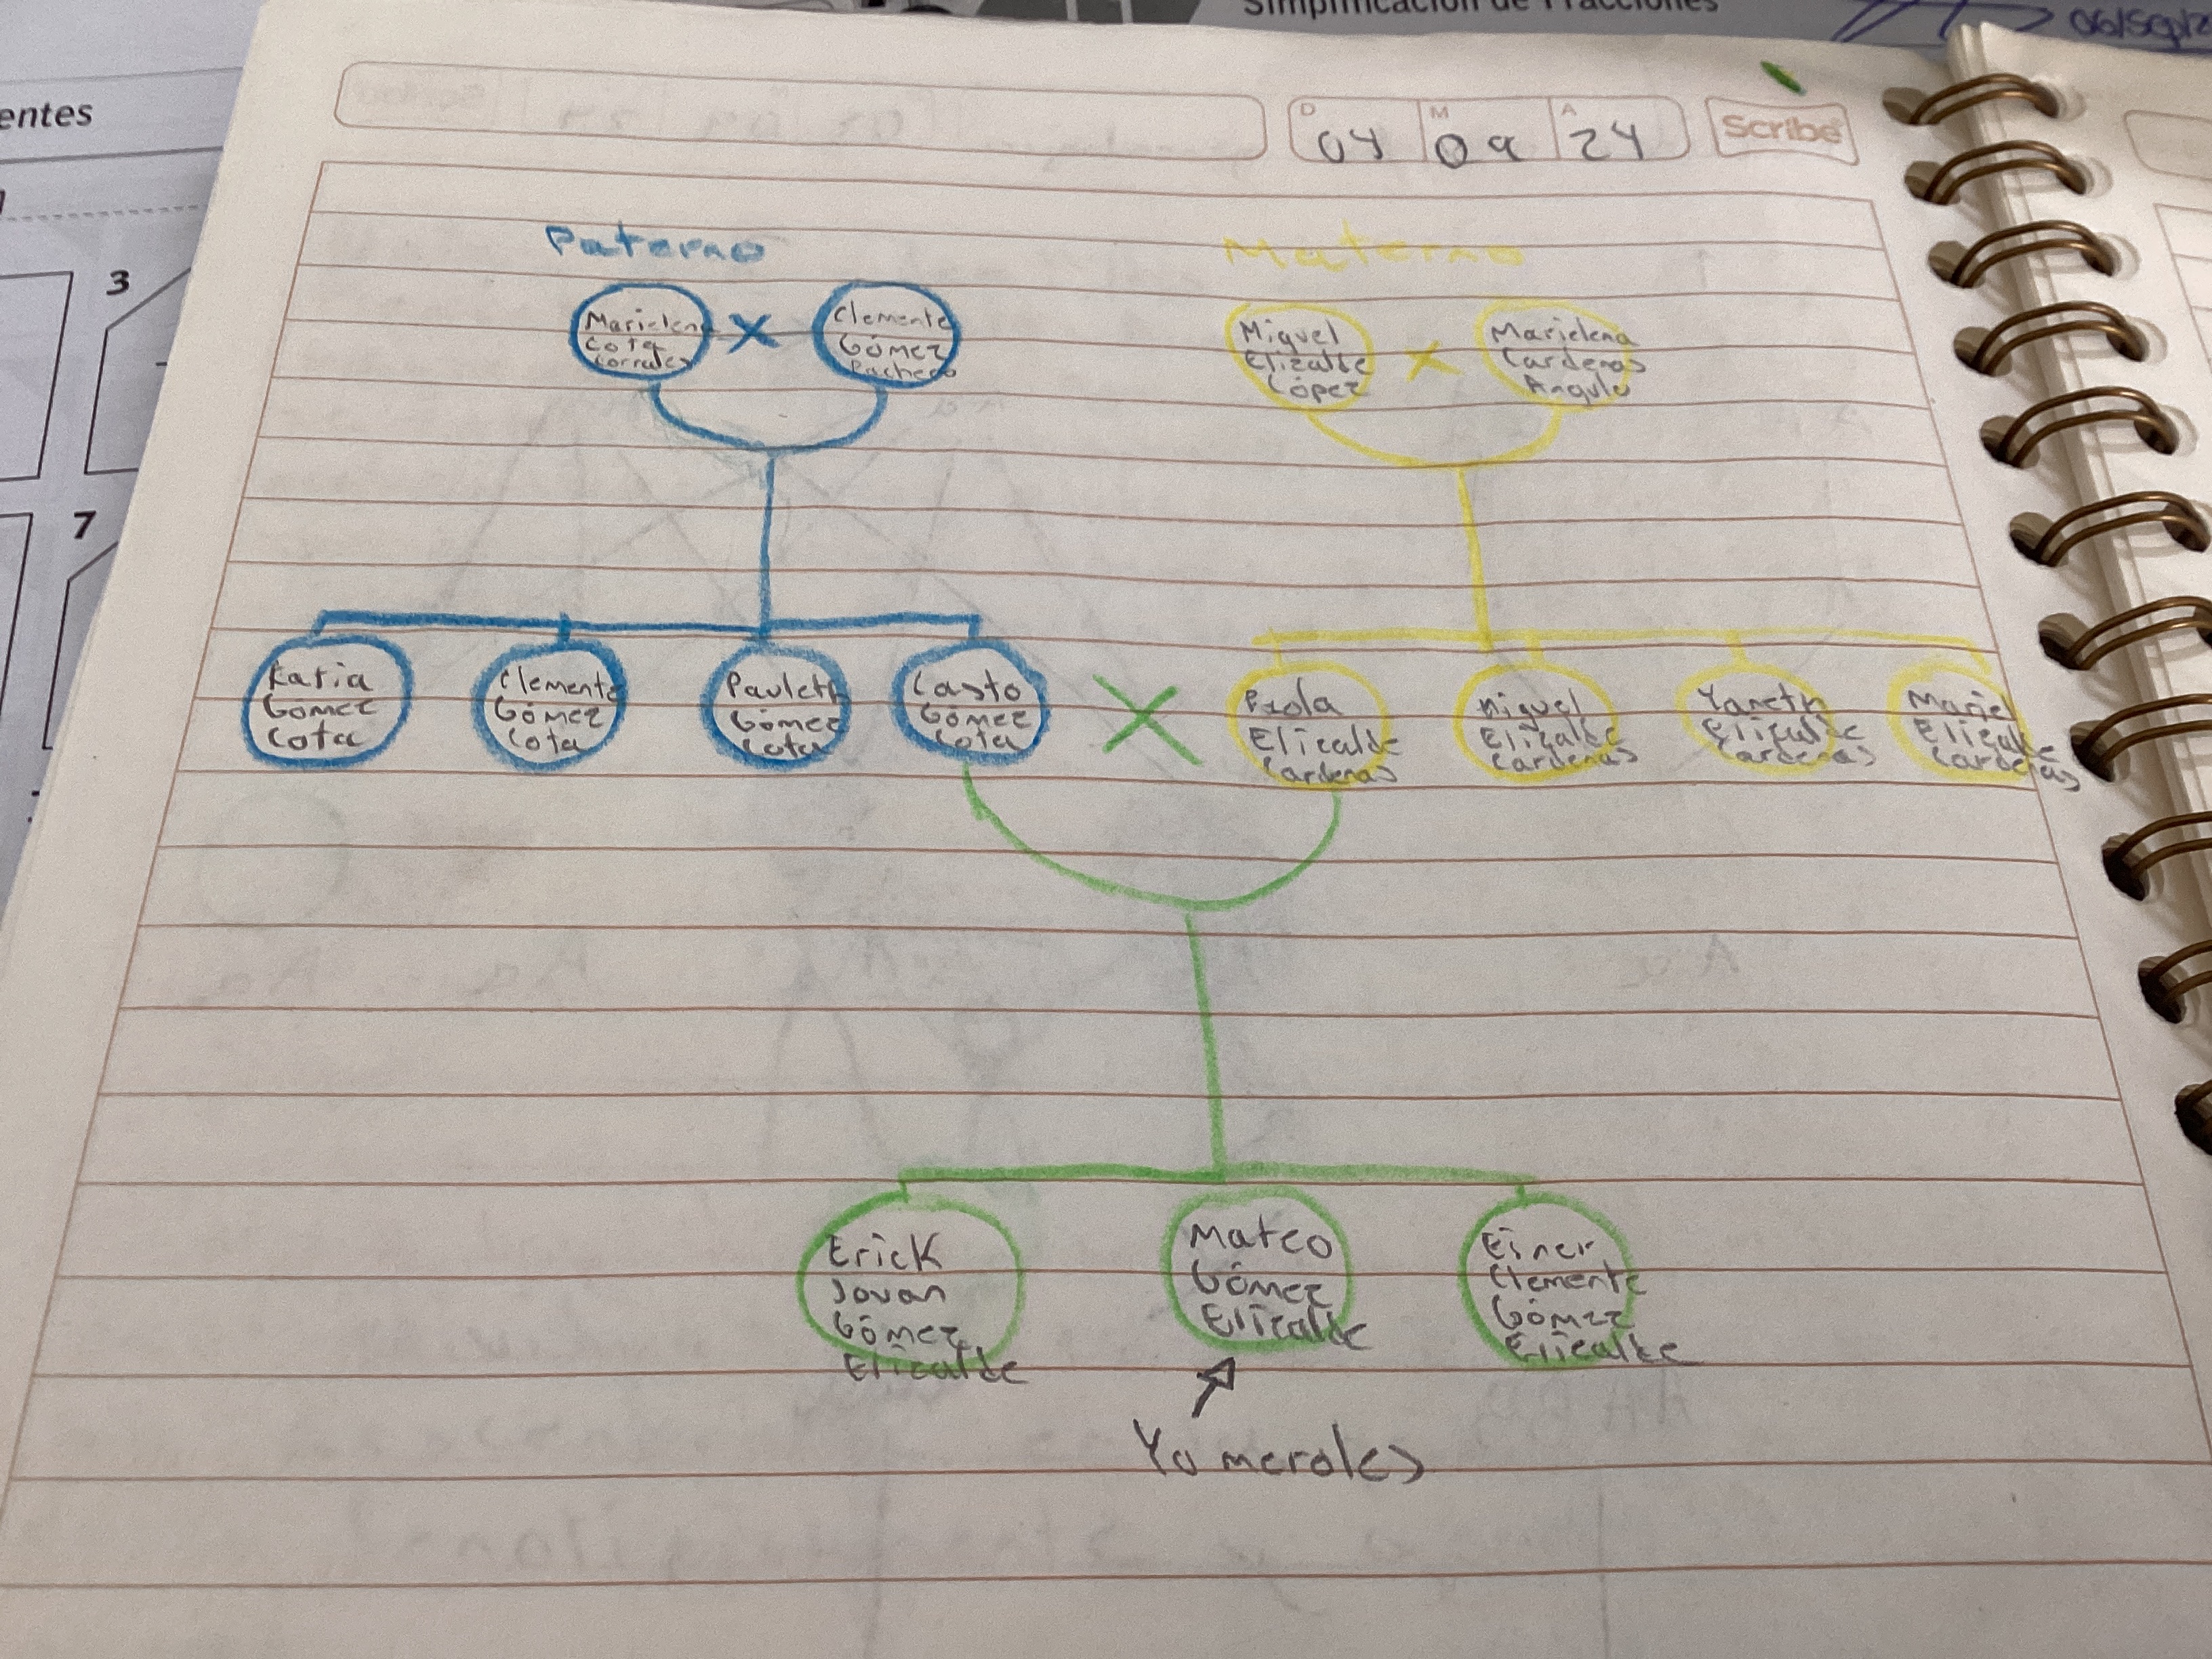 Simplificación de Fracciones
06/Sep/2
entes
3
7
D M A
04 09 24
Scribe
Paterno
Materno
Marielena
Cota
Corrales
X
Clemente
Gómez
Pacheco
Miguel
Elizalde
López
X
Marielena
Cardenas
Angulo
Katia
Gomez
Cota
Clemente
Gómez
Cota
Paulett
Gómez
Cota
Casto
Gómez
Cota
X
Paola
Elizalde
Cardenas
Miguel
Elizalde
Cardenas
Yaneth
Elizalde
Cardenas
Mariel
Elizalde
Cardenas
Erick
Jovan
Gómez
Elizalde
Mateo
Gómez
Elizalde
Einer
Clemente
Gómez
Elizalde
Yo meroles